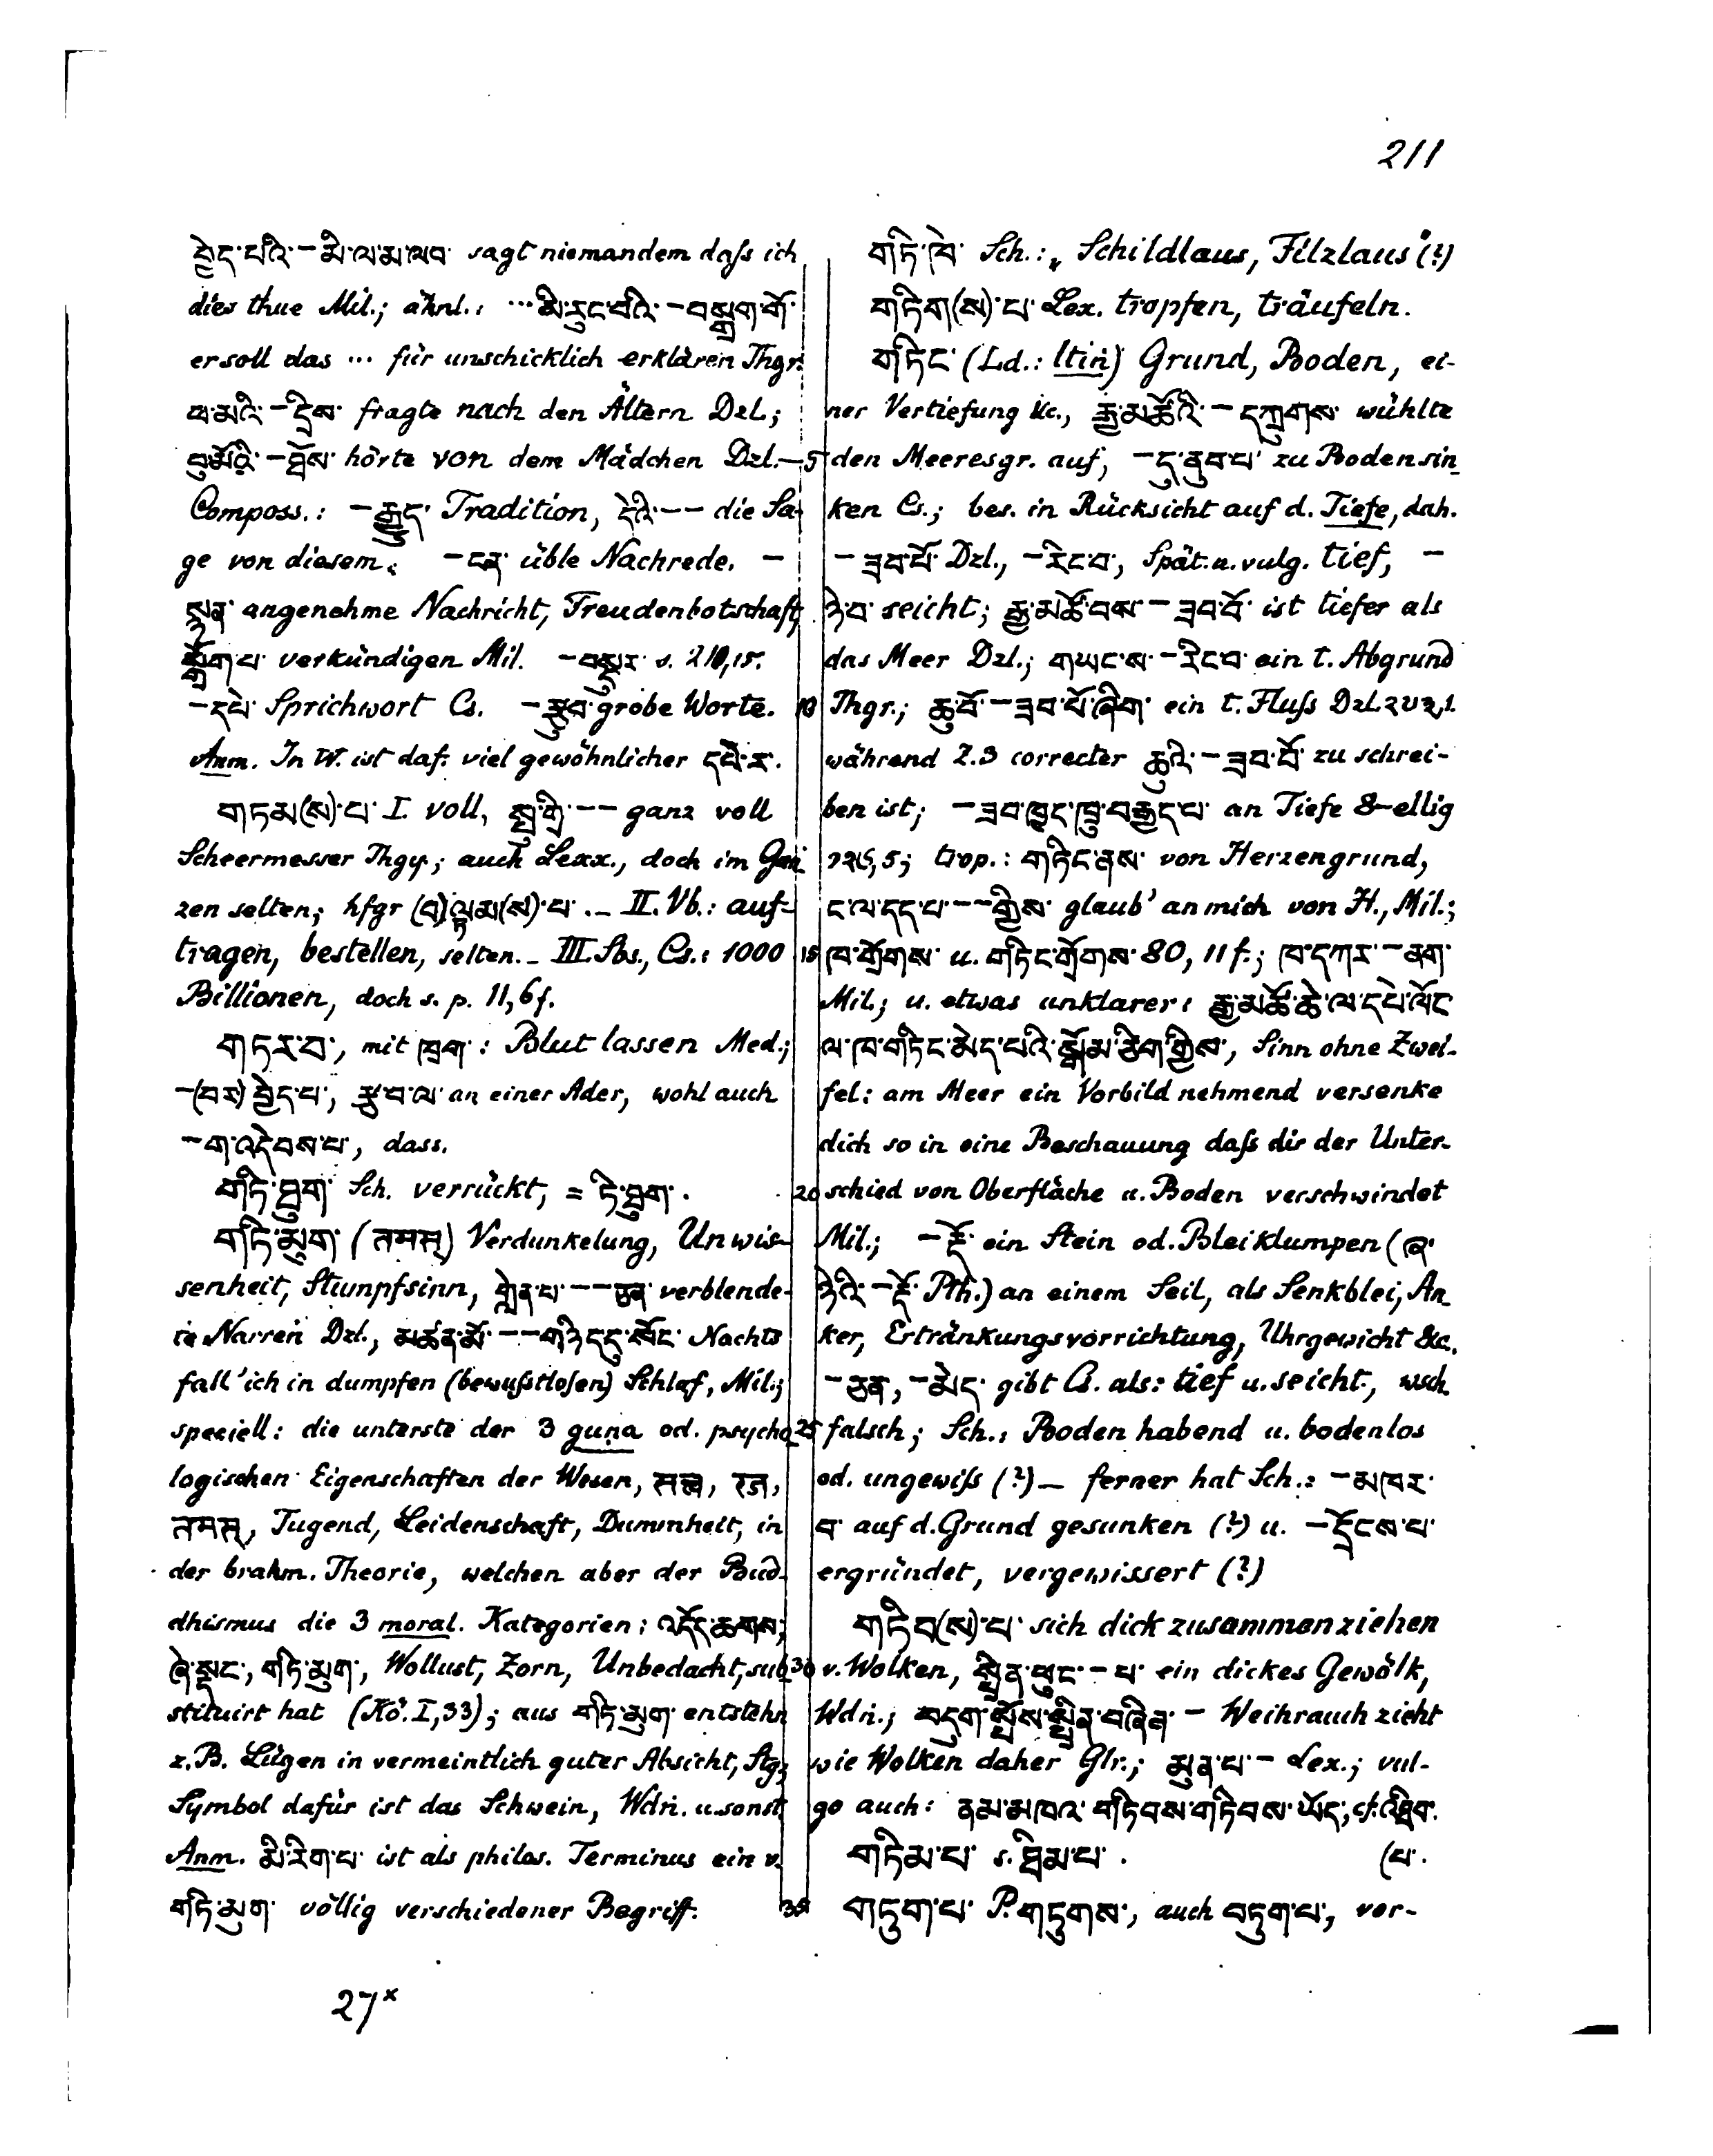 211
བྱེད་པའི་ – མི་ལ་མ་ལབ་ sagt niemandem daſs ich
dies thue Mil.; ähnl.: ... མི་རུང་བའི་ – བསྒྲག་གོ་
er soll das ... für unschicklich erklären Thgr.
ཕ་མའི་ – དྲིས་ fragte nach den Ältern Dzl.;
བུ་མོའི་ – ཐོས་ hörte von dem Mädchen Dzl. –
Composs.: – རྒྱུད་ Tradition, དེའི་ – – die Sa-
ge von diesem. – ངན་ üble Nachrede. –
སྙན་ angenehme Nachricht, Freudenbotschaft,
སྒྲོག་པ་ verkündigen Mil. – བསྡུར་ s. 210,15.
– དཔེ་ Sprichwort Cs. – རྩུབ་ grobe Worte.
Anm. In W. ist daf. viel gewöhnlicher དཔེ་ར་.
གཏམ(ས)་པ་ I. voll, སྤུ་གྲི་ – – ganz voll
Scheermesser Thgy.; auch Lexx., doch im Gan-
zen selten; hfgr (བ)ལྟམ(ས)་པ་. – II. Vb.: auf-
tragen, bestellen, selten. – III. Sbs., Cs.: 1000
Billionen, doch s. p. 11,6 f.
གཏར་བ་, mit ཁྲག་: Blut lassen Med.;
– (བར) བྱེད་པ་, རྩ་བ་ལ་ an einer Ader, wohl auch
– ག་འདེབས་པ་, dass.
གཏི་ཐུག་ Sch. verrückt, = ཏི་ཐུག་.
གཏི་མུག་ (तमस्) Verdunkelung, Unwis-
senheit, Stumpfsinn, གླེན་པ་ – – ཅན་ verblende-
te Narren Dzl., མཚན་མོ་ – – གཉིད་དུ་སོང་ Nachts
fall' ich in dumpfen (bewuſstlosen) Schlaf, Mil.;
speciell: die unterste der 3 guṇa od. psycho-
logischen Eigenschaften der Wesen, सत्त्व, रज,
तमस्, Tugend, Leidenschaft, Dummheit, in
der brahm. Theorie, welchen aber der Bud-
dhismus die 3 moral. Kategorien: འདོད་ཆགས་,
ཞེ་སྡང་, གཏི་མུག་, Wollust, Zorn, Unbedacht, sub-
stituirt hat (Kö. I,33); aus གཏི་མུག་ entstehn
z.B. Lügen in vermeintlich guter Absicht, Stg.;
Symbol dafür ist das Schwein, Wdṅ. u. sonst
Anm. མི་རིག་པ་ ist als philos. Terminus ein v.
གཏི་མུག་ völlig verschiedener Begriff.
27*
གཏི་ཁེ་ Sch.: „Schildlaus, Filzlaus“ (?)
གཏིག(ས)་པ་ Lex. tropfen, träufeln.
གཏིང་ (Ld.: ltiṅ) Grund, Boden, ei-
ner Vertiefung &c., རྒྱ་མཚོའི་ – དཀྲུགས་ wühlte
5 den Meeresgr. auf, – དུ་ནུབ་པ་ zu Boden sin-
ken Cs.; bes. in Rücksicht auf d. Tiefe, dah.
– ཟབ་པོ་ Dzl., – རིང་བ་, Spät. u. vulg. tief, –
ཉེ་བ་ seicht; རྒྱ་མཚོ་བས་ – ཟབ་བོ་ ist tiefer als
das Meer Dzl.; གཡང་ས་ – རིང་བ་ ein t. Abgrund
10 Thgr.; ཆུ་བོ་ – ཟབ་པོ་ཞིག་ ein t. Fluſs Dzl. ༢༧༢,1.
während Z.3 correcter ཆུའི་ – ཟབ་བོ་ zu schrei-
ben ist; – ཟབ་ཁྱད་ཁྲུ་བརྒྱད་པ་ an Tiefe 8-ellig
༡༢༦,5; trop.: གཏིང་ནས་ von Herzengrund,
ང་ལ་དད་པ་ – – གྱིས་ glaub' an mich von H., Mil.;
15 ཁ་གྲོགས་ u. གཏིང་གྲོགས་ 80, 11 f.; ཁ་དཀར་ – ནག་
Mil.; u. etwas unklarer: རྒྱ་མཚོ་ཆེ་ལ་དཔེ་ལོང་
ལ་ཁ་གཏིང་མེད་པའི་སྒོམ་ཅིག་གྱིས་, Sinn ohne Zwei-
fel: am Meer ein Vorbild nehmend versenke
dich so in eine Beschauung daſs dir der Unter-
20 schied von Oberfläche u. Boden verschwindet
Mil.; – རྡོ་ ein Stein od. Bleiklumpen (ཞ་
ཉེའི་ – རྡོ་ Pth.) an einem Seil, als Senkblei, An-
ker, Ertränkungsvorrichtung, Uhrgewicht &c.
– ཅན་, – མེད་ gibt Cs. als: tief u. seicht, wsch.
25 falsch; Sch.: Boden habend u. bodenlos
od. ungewiſs (?) – ferner hat Sch.: – མཁར་
བ་ auf d. Grund gesunken (?) u. – དྲོངས་པ་
ergründet, vergewissert (?)
གཏིབ(ས)་པ་ sich dick zusammenziehen
30 v. Wolken, སྤྲིན་ཕུང་ – པ་ ein dickes Gewölk,
Wdṅ.; བདུག་སྤོས་སྤྲིན་བཞིན་ – Weihrauch zieht
wie Wolken daher Glr.; མུན་པ་ – Lex.; vul-
go auch: ནམ་མཁའ་གཏིབས་གཏིབས་ཡོད་; cf. འཐིབ་
གཏིམ་པ་ s. ཐིམ་པ་. (པ་.
35 གཏུག་པ་ P. གཏུགས་, auch བཏུག་པ་, vor-